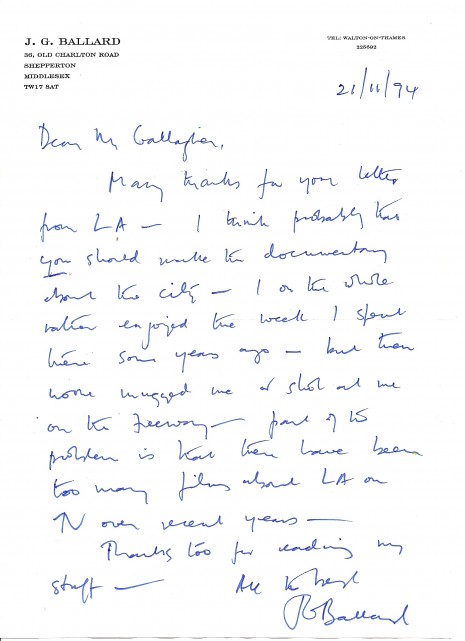 J. G. BALLARD
36, OLD CHARLTON ROAD
SHEPPERTON
MIDDLESEX
TW17 8AT
TEL: WALTON-ON-THAMES
225692
21/11/94
Dear Mr Gallagher,
Many thanks for your letter
from LA — I think probably that
you should make the documentary
about the city — I on the whole
rather enjoyed the week I spent
there some years ago — but then
noone mugged me or shot at me
on the freeway — part of the
problem is that there have been
too many films about LA on
TV over recent years —
Thanks too for reading my
stuff — All the best
JGBallard